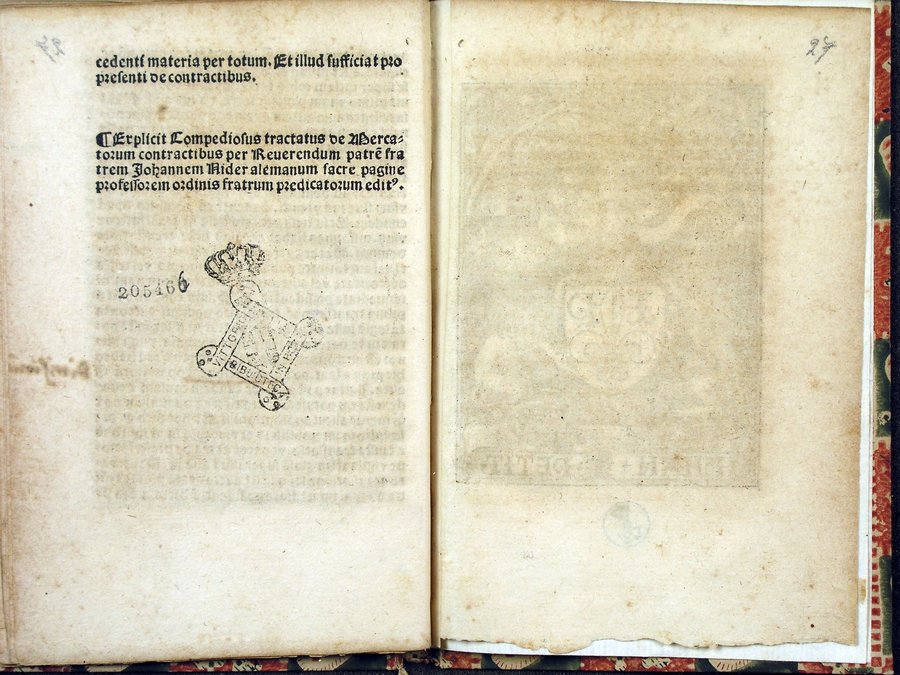 cedenti materia per totum. Et illud sufficiat pro
presenti de contractibus.
¶ Explicit Compediosus tractatus de Merca-
torum contractibus per Reuerendum patrē fra
trem Johannem Nider alemanum sacre pagine
professorem ordinis fratrum predicatorum editꝰ.
205466
VITTORIO
BIBLIOTECA
27